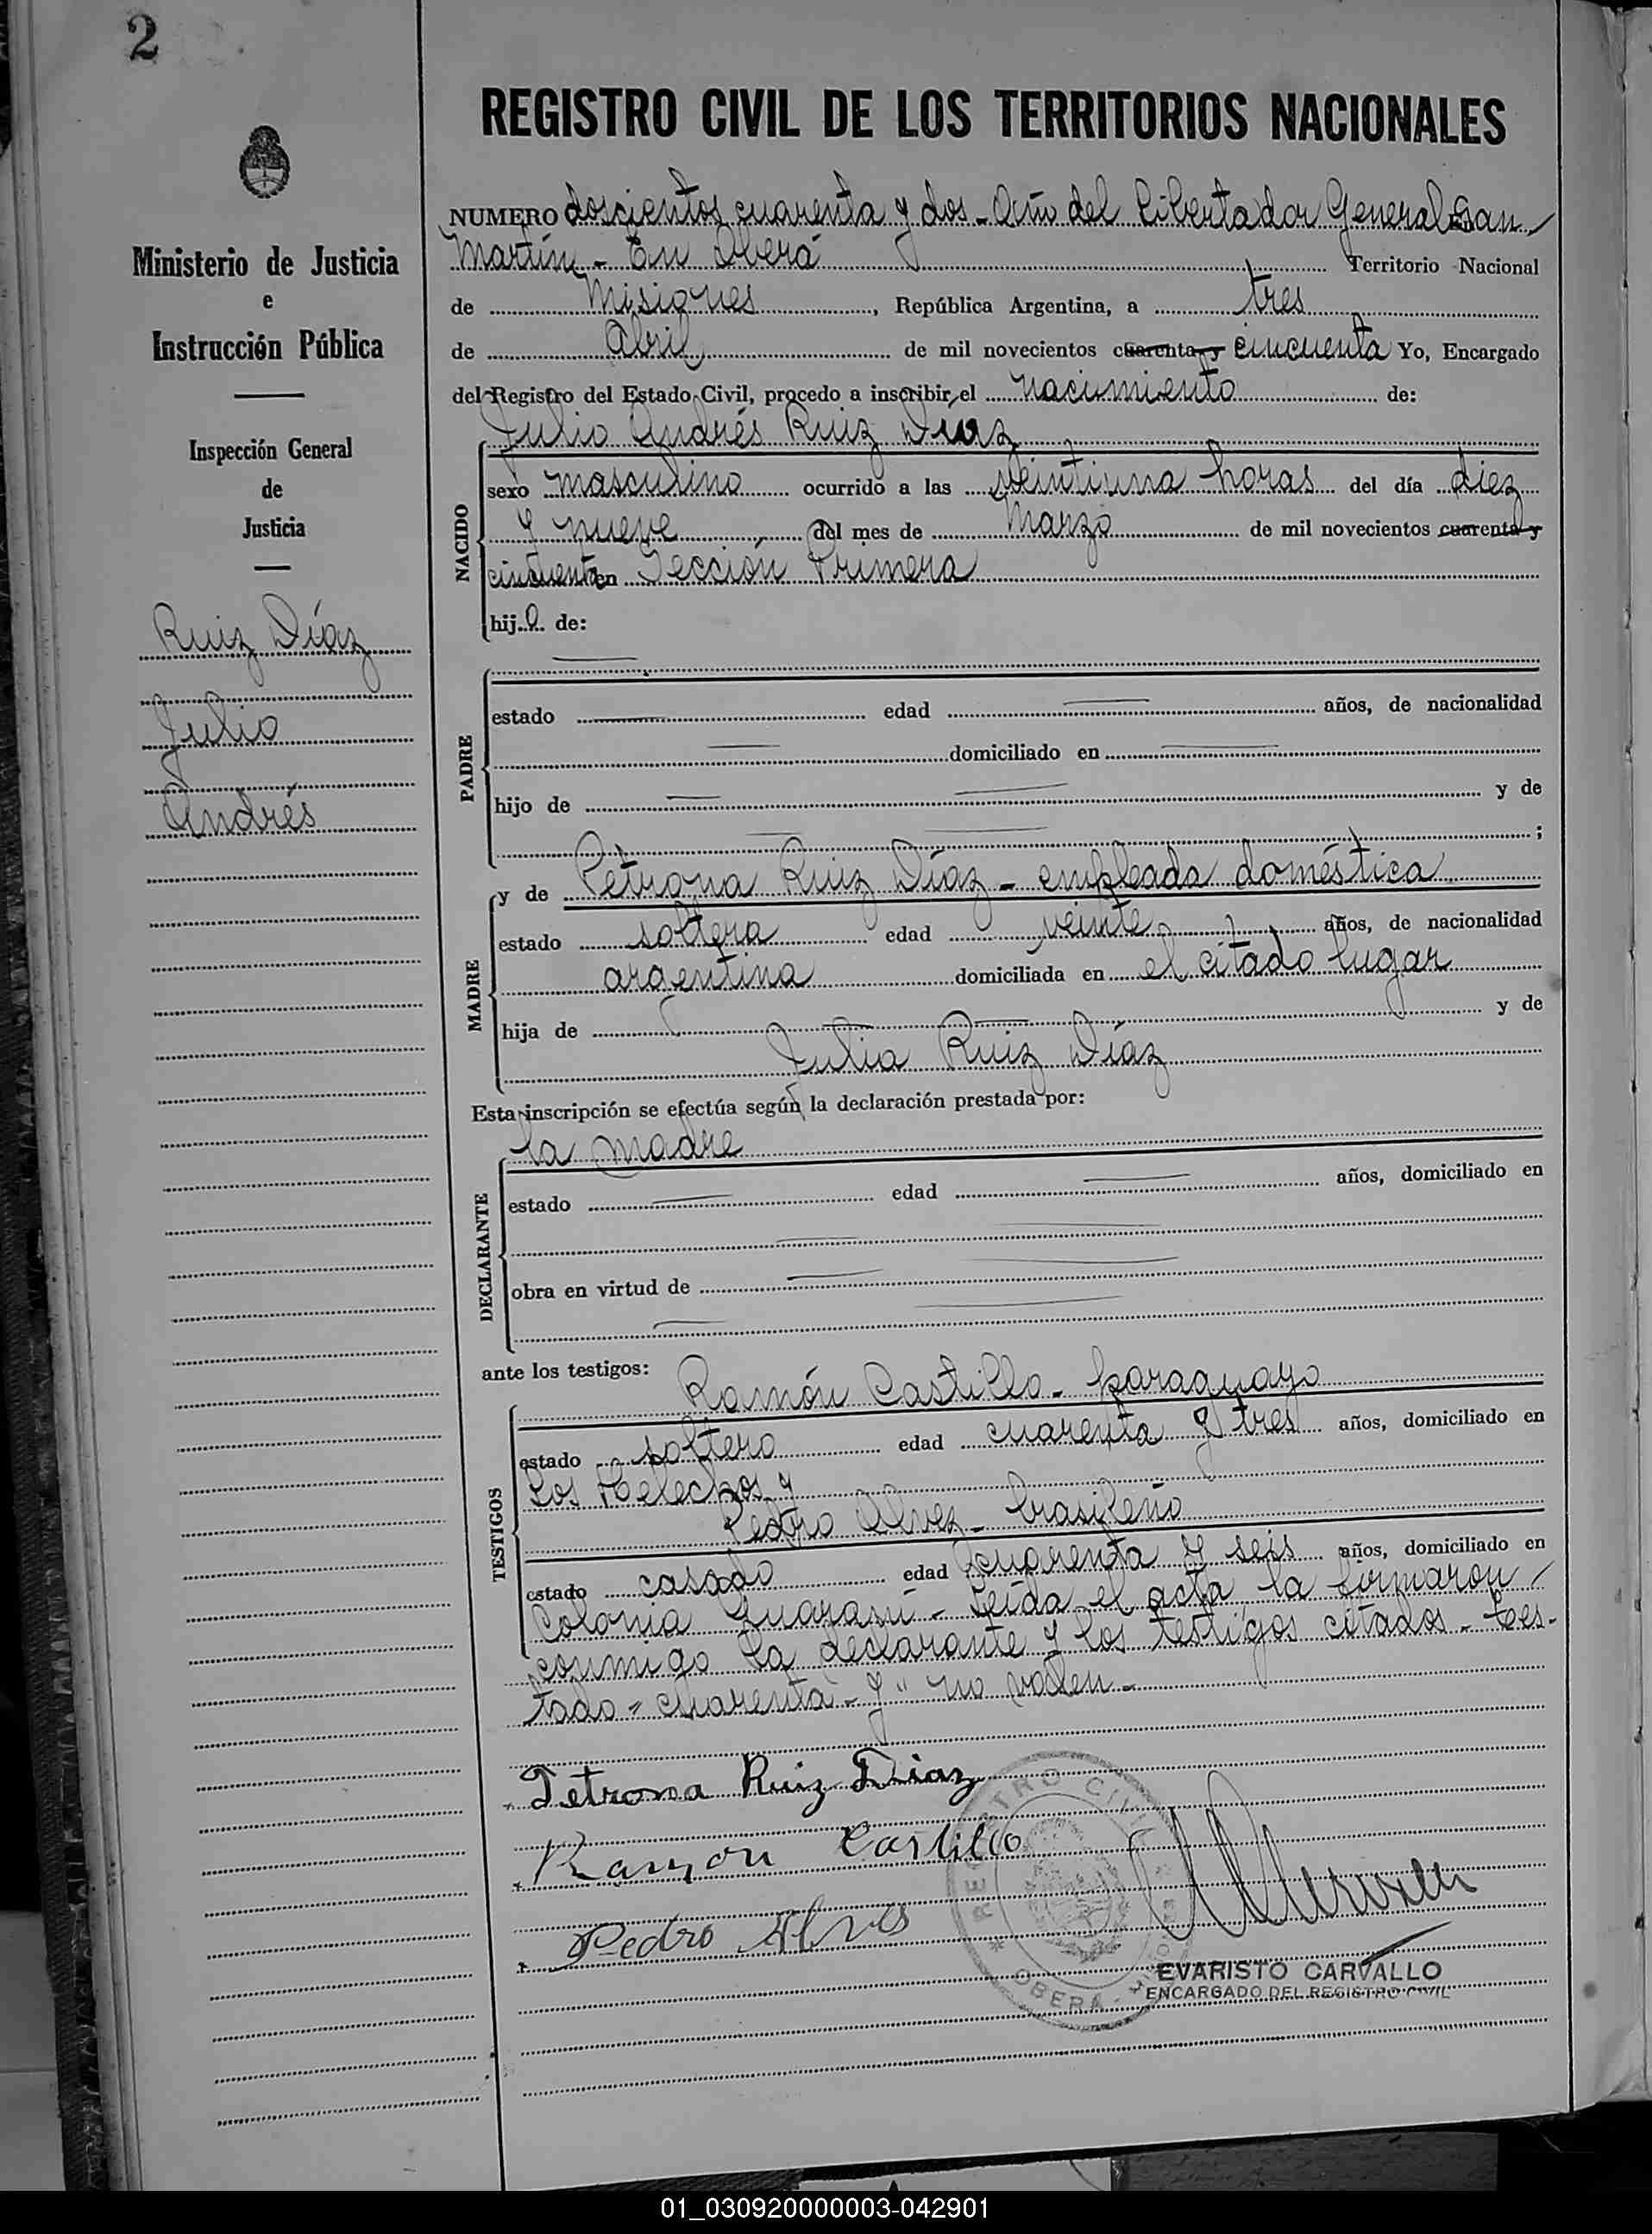 2
Ministerio de Justicia
e
Instrucción Pública
Inspección General
de
Justicia
Ruiz Díaz
Julio
Andrés
REGISTRO CIVIL DE LOS TERRITORIOS NACIONALES
NUMERO doscientos cuarenta y dos - Año del Libertador General San
Martín - En Oberá Territorio Nacional
de Misiones, República Argentina, a tres
de Abril de mil novecientos cuarenta y cincuenta Yo, Encargado
del Registro del Estado Civil, procedo a inscribir el nacimiento de:
Julio Andrés Ruiz Diaz
NACIDO
sexo masculino ocurrido a las veintiuna horas del día diez
y nueve del mes de Marzo de mil novecientos cuarenta y
cincuenta en Sección Primera
hijo de:
PADRE
estado edad años, de nacionalidad
domiciliado en
hijo de y de
;
MADRE
y de Petrona Ruiz Díaz - empleada doméstica
estado soltera edad veinte años, de nacionalidad
argentina domiciliada en el citado lugar
hija de y de
Julia Ruiz Díaz
Esta inscripción se efectúa según la declaración prestada por:
la madre
DECLARANTE
estado edad años, domiciliado en
obra en virtud de
ante los testigos: Ramón Castillo - paraguayo
TESTIGOS
estado soltero edad cuarenta y tres años, domiciliado en
Los Helechos y
Pedro Alvez - brasileño
estado casado edad cuarenta y seis años, domiciliado en
Colonia Guaraní - Leída el acta la firmaron
conmigo la declarante y los testigos citados - Tes-
tado "cuarenta - y" no valen -
Petrona Ruiz Diaz
Ramon Castillo
Pedro Alves
REGISTRO CIVIL
OBERA
EVARISTO CARVALLO
ENCARGADO DEL REGISTRO CIVIL
01_030920000003-042901